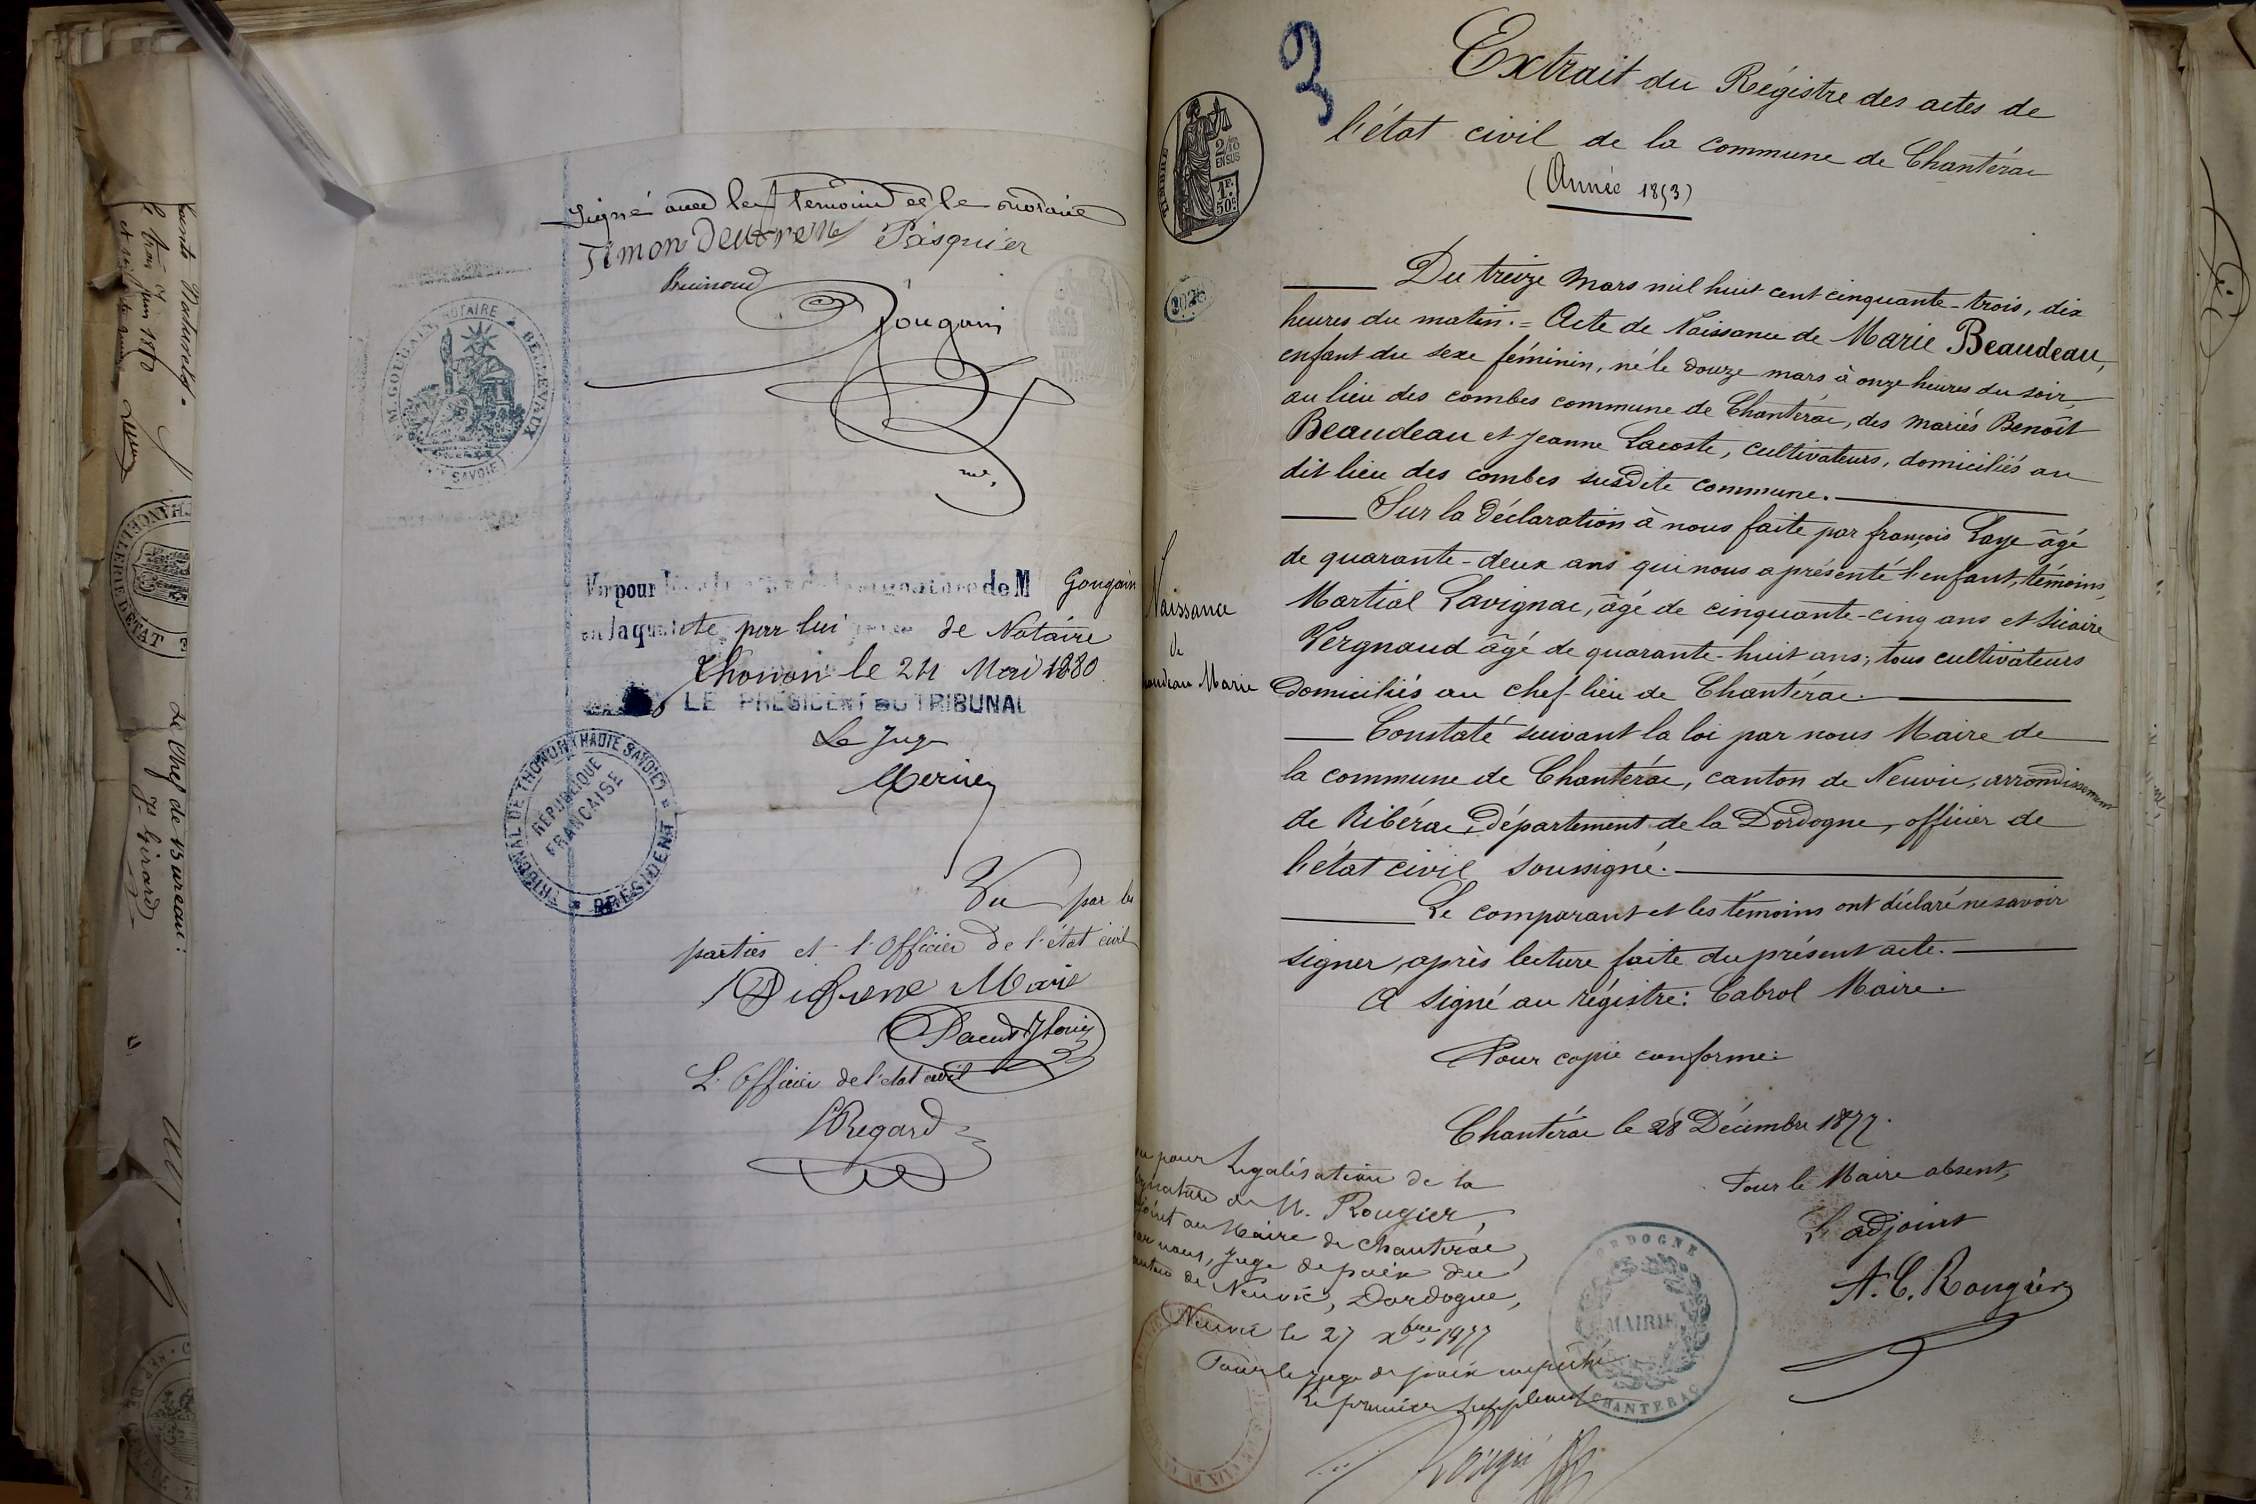 Signé avec les témoins et le notaire
Timon Deucren Pasquier
Gougain
M. GOUGAIN, NOTAIRE A BELLEVAUX
SAVOIE
Vu pour signature de M Gougain
en la qualité par lui de Notaire
Thonon le 24 Mai 1880.
LE PRÉSIDENT DU TRIBUNAL
Le Juge
TRIBUNAL DE THONON (HAUTE SAVOIE)
RÉPUBLIQUE
FRANCAISE
PRÉSIDENT
Vu par les
parties et l'Officier de l'état civil
Dufrene Marie
L'Officier de l'état civil
Regard
naturels.
le trois juin
CHANCELLERIE D'ETAT
Le Chef de Bureau:
Js Girard
3
Extrait du Régistre des actes de
l'état civil de la commune de Chantérac
(Année 1853)
TIMBRE
2/10
EN SUS
1F.
50c.
Du treize mars mil huit cent cinquante-trois, dix
heures du matin. = Acte de Naissance de Marie Beaudeau,
enfant du sexe féminin, né le douze mars à onze heures du soir
au lieu des combes commune de Chantérac, des mariés Benoît
Beaudeau et Jeanne Lacoste, cultivateurs, domiciliés au
dit lieu des combes susdite commune.
Sur la déclaration à nous faite par françois Laye âgé
de quarante-deux ans qui nous a présenté l'enfant, témoins,
Martial Lavignac, âgé de cinquante-cinq ans et Sicaire
Vergnaud âgé de quarante-huit ans; tous cultivateurs
domiciliés au chef-lieu de Chantérac.
Naissance
de
Marie
Constaté suivant la loi par nous Maire de
la commune de Chantérac, canton de Neuvic, arrondissement
de Ribérac, département de la Dordogne, officier de
l'état civil soussigné.
Le comparant et les témoins ont déclaré ne savoir
signer, après lecture faite du présent acte.
A signé au régistre: Cabrol Maire.
Pour copie conforme:
Chantérac le 28 Décembre 1877.
Pour le Maire absent,
L'adjoint
A. C. Rougier
DORDOGNE
MAIRIE
CHANTERAC
pour Légalisation de la
de M. Rougier,
au Maire de Chantérac
nous, Juge de paix du
de Neuvic, Dordogne,
Neuvic le 27 xbre 1877
Pour le juge de paix empêché
Le premier suppléant